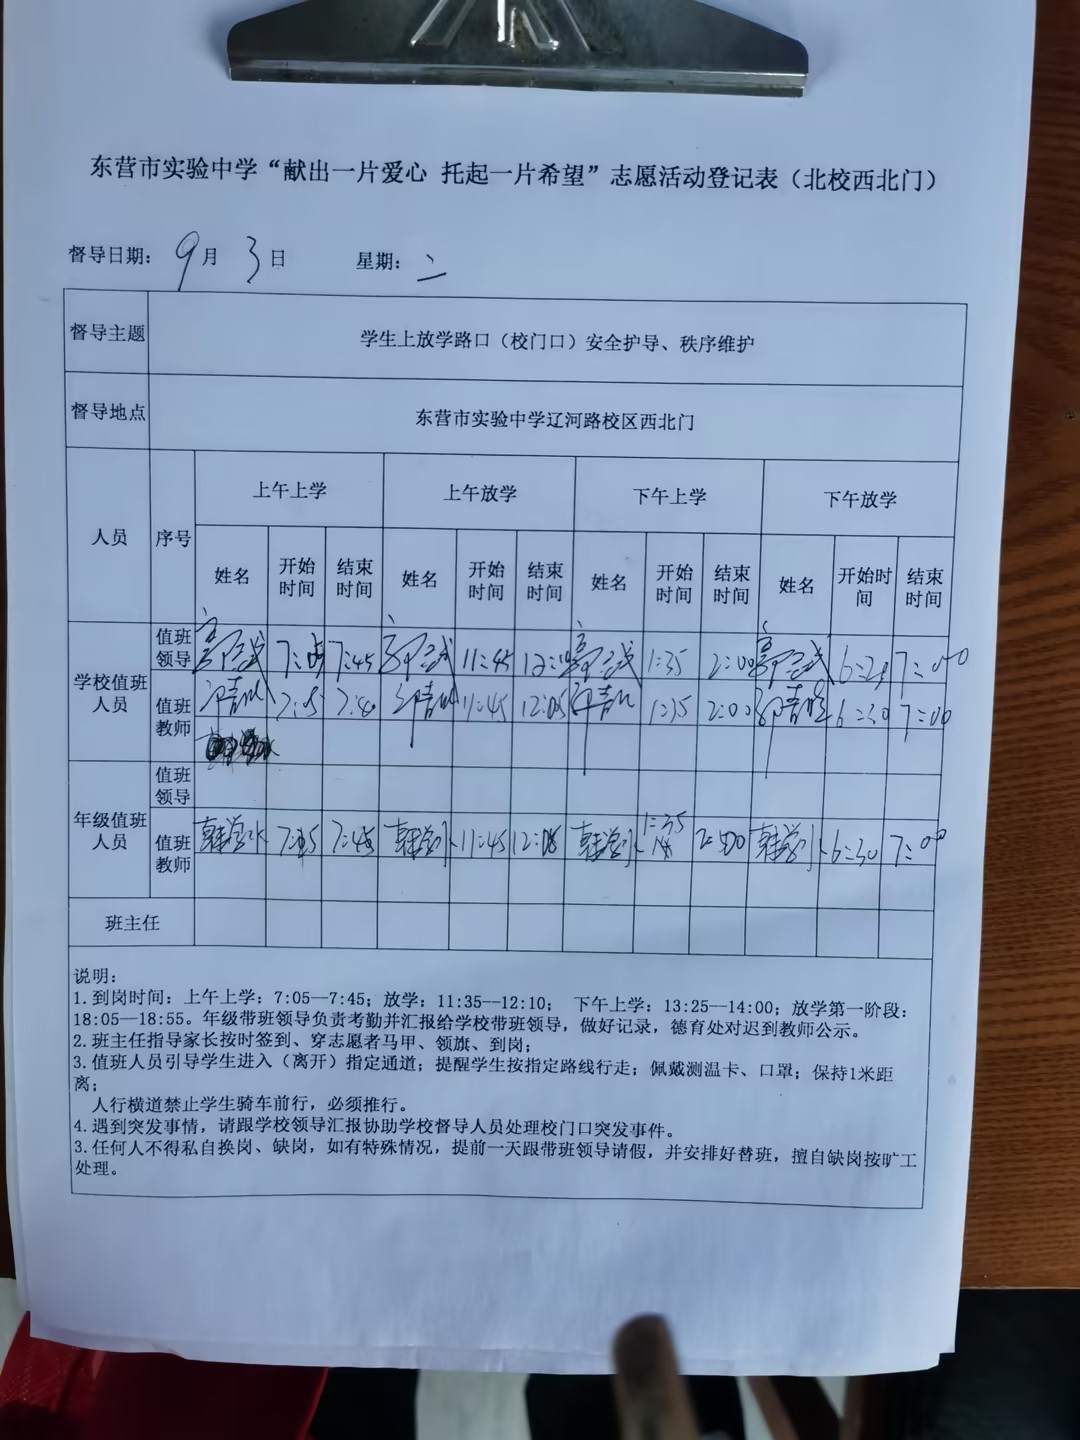 东营市实验中学“献出一片爱心 托起一片希望”志愿活动登记表（北校西北门）
督导日期： 9月 3日 星期：二
督导主题 学生上放学路口（校门口）安全护导、秩序维护
督导地点 东营市实验中学辽河路校区西北门
人员 序号 上午上学 上午放学 下午上学 下午放学
姓名 开始时间 结束时间 姓名 开始时间 结束时间 姓名 开始时间 结束时间 姓名 开始时间 结束时间
学校值班人员 值班领导 7:45 11:45 1:35 2:00 7:00
值班教师 11:45 12:05 2:00 6:30 7:00
年级值班人员 值班领导
值班教师 韩学 7:45 韩学 11:45 韩学 1:35 2:00 韩学 6:30 7:00
班主任
说明：
1.到岗时间：上午上学：7:05—7:45；放学：11:35--12:10； 下午上学：13:25--14:00；放学第一阶段：
18:05--18:55。年级带班领导负责考勤并汇报给学校带班领导，做好记录，德育处对迟到教师公示。
2.班主任指导家长按时签到、穿志愿者马甲、领旗、到岗；
3.值班人员引导学生进入（离开）指定通道；提醒学生按指定路线行走；佩戴测温卡、口罩；保持1米距
离；
人行横道禁止学生骑车前行，必须推行。
4.遇到突发事情，请跟学校领导汇报协助学校督导人员处理校门口突发事件。
3.任何人不得私自换岗、缺岗，如有特殊情况，提前一天跟带班领导请假，并安排好替班，擅自缺岗按旷工
处理。